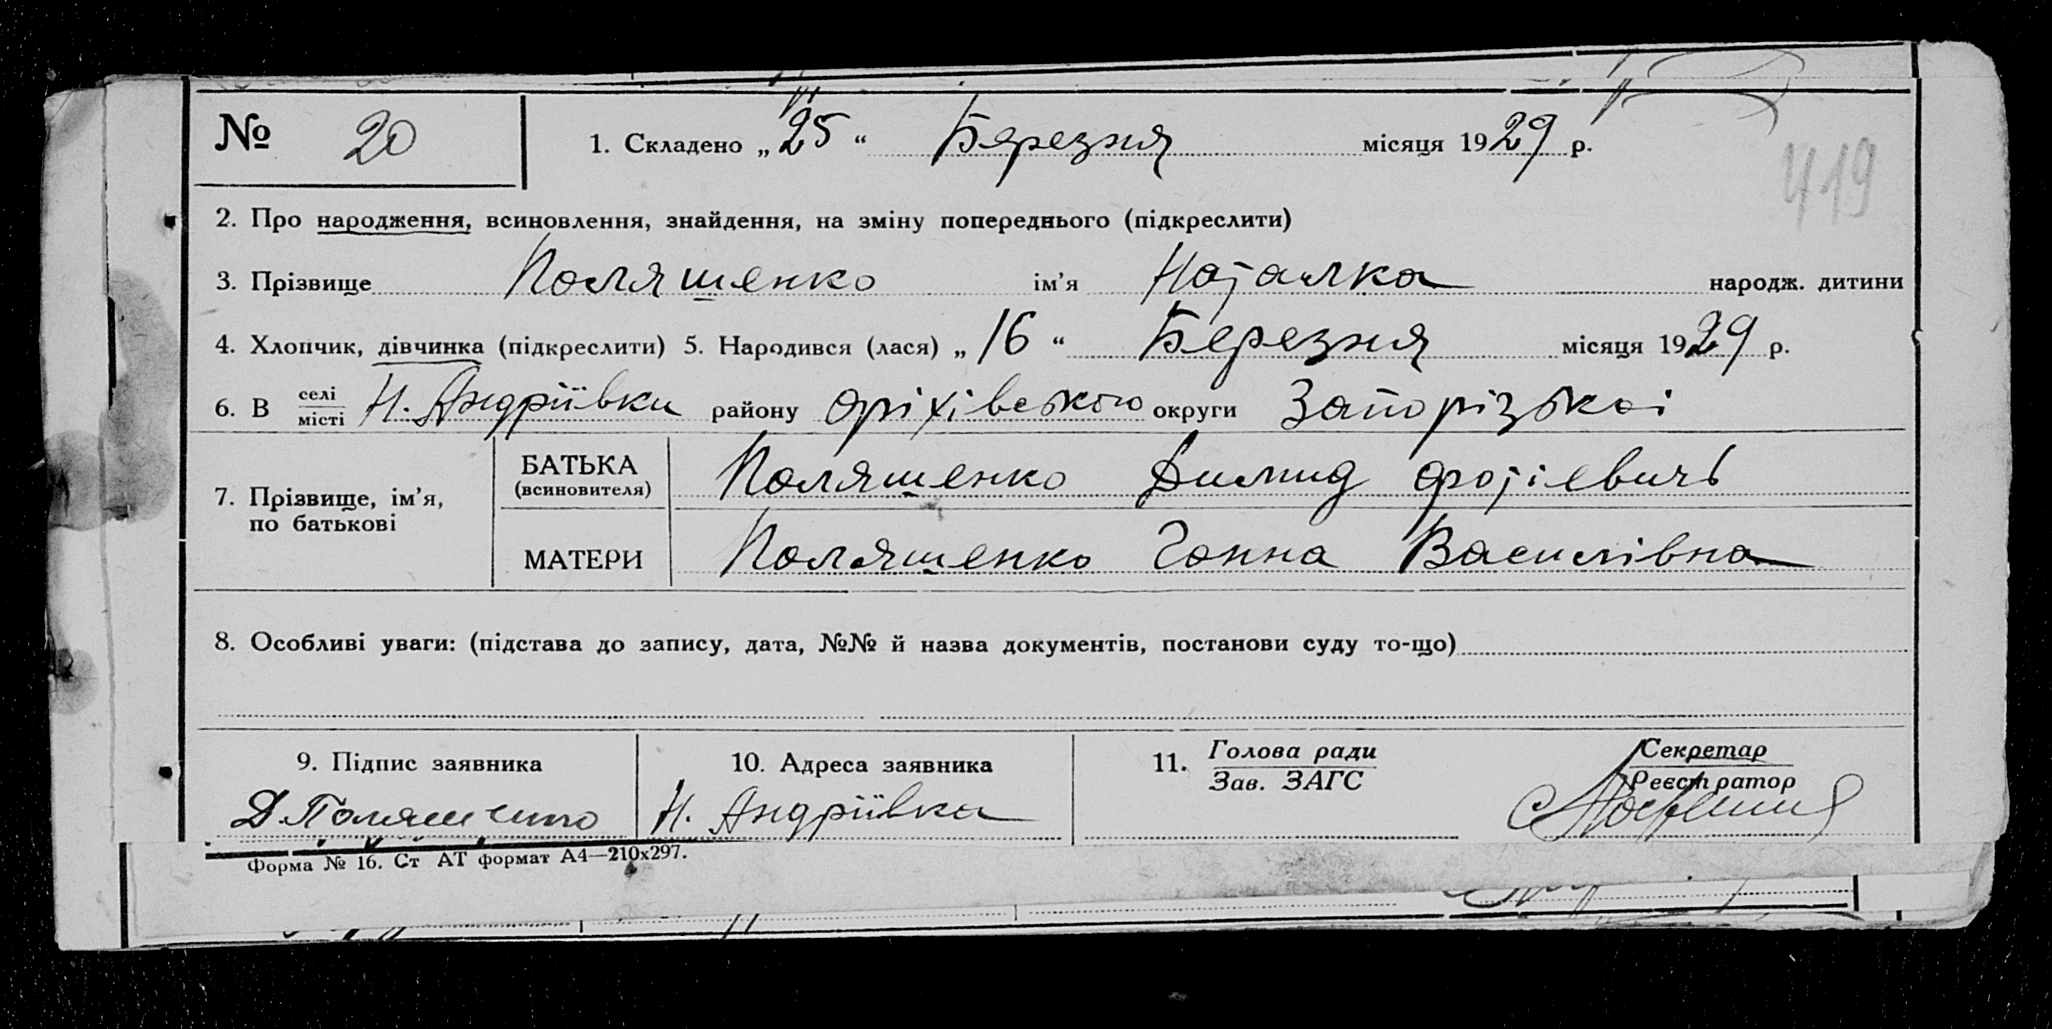 № 20 1. Складено „25“ Березня місяця 1929 р.
419
2. Про народження, всиновлення, знайдення, на зміну попереднього (підкреслити)
3. Прізвище Поляшенко ім’я Наталка народж. дитини
4. Хлопчик, дівчинка (підкреслити) 5. Народився (лася) „16“ Березня місяця 1929 р.
6. В селі місті Н. Андріївки району Оріхівського округи Запорізької
7. Прізвище, ім’я, по батькові
БАТЬКА (всиновителя) Поляшенко Дилид Фотіевичь
МАТЕРИ Поляшенко Ганна Василівна
8. Особливі уваги: (підстава до запису, дата, №№ й назва документів, постанови суду то-що)
9. Підпис заявника 10. Адреса заявника 11. Голова ради Зав. ЗАГС Секретар Реєстратор
Д. Поляшенко Н. Андріївка
Форма № 16. Ст АТ формат А4—210х297.